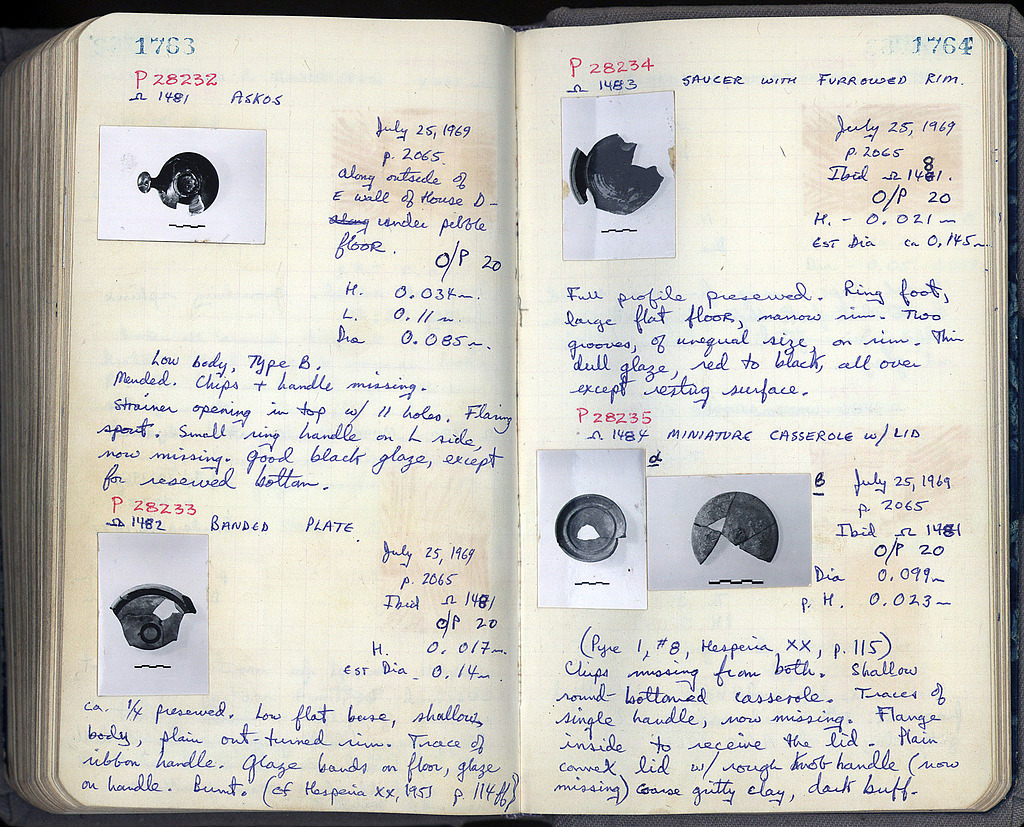 1763
P 28232
Ω 1481 ASKOS
July 25, 1969
p. 2065.
along outside of
E wall of House D –
along under pebble
floor.
O/P 20
H. 0.034 m.
L. 0.11 m.
Dia 0.085 m.
Low body, Type B.
Mended. Chips + handle missing.
Strainer opening in top w/ 11 holes. Flaring
spout. Small ring handle on L side,
now missing. Good black glaze, except
for reserved bottom.
P 28233
Ω 1482 BANDED PLATE.
July 25, 1969
p. 2065
Ibid Ω 1481
O/P 20
H. 0.017 m.
EST Dia 0.14 m.
ca. 1/4 preserved. Low flat base, shallow
body, plain out-turned rim. Trace of
ribbon handle. Glaze bands on floor, glaze
on handle. Burnt. (cf Hesperia XX, 1951 p. 114ff)
1764
P 28234
Ω 1483 SAUCER WITH FURROWED RIM.
July 25, 1969
p. 2065
Ibid Ω 1481.
O/P 20
H. – 0.021 m
EST Dia ca 0.145 m.
Full profile preserved. Ring foot,
large flat floor, narrow rim. Two
grooves, of unequal size, on rim. Thin
dull glaze, red to black, all over
except resting surface.
P 28235
Ω 1484 MINIATURE CASSEROLE W/ LID
a
B July 25, 1969
p. 2065
Ibid Ω 1481
O/P 20
Dia 0.099 m
p. H. 0.023 m
(Pyre 1, #8, Hesperia XX, p. 115)
Chips missing from both. Shallow
round-bottomed casserole. Traces of
single handle, now missing. Flange
inside to receive the lid. Plain
convex lid w/ rough knob handle (now
missing) coarse gritty clay, dark buff.